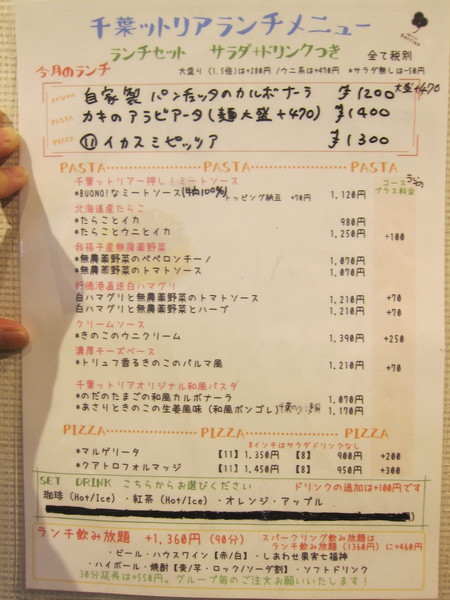 千葉ットリアランチメニュー
ランチセット サラダ+ドリンクつき 全て税別
今月のランチ 大盛り(1.5倍)は+280円/ウニ系は+470円 *サラダ無しは-50円
自家製 パンチェッタのカルボナーラ ¥1200 大盛+470
PASTA カキのアラビアータ(麺大盛+470) ¥1400
PIZZA ⑪イカスミピッツァ ¥1300
PASTA PASTA PASTA
千葉ットリア一押し!ミートソース
*BUONO!なミートソース(牛肉100%) トッピング納豆 +70円 1,120円
コース
プラス料金
北海道産たらこ
*たらことイカ 980円
*たらことウニとイカ 1,250円 +100
我孫子産無農薬野菜
*無農薬野菜のペペロンチーノ 1,070円
*無農薬野菜のトマトソース 1,070円
行徳港直送白ハマグリ
白ハマグリと無農薬野菜のトマトソース 1,210円 +70
白ハマグリと無農薬野菜とハーブ 1,210円 +70
クリームソース
*きのこのウニクリーム 1,390円 +250
濃厚チーズベース
*トリュフ香るきのこのパルマ風 1,210円 +70
千葉ットリアオリジナル和風パスタ
*のだのたまごの和風カルボナーラ 1,070円
*あさりときのこの生姜風味(和風ボンゴレ) 1,170円
PIZZA PIZZA PIZZA
8インチはサラダドリンクなし
*マルゲリータ 【11】1,350円 【8】 900円 +200
*クアトロフォルマッジ 【11】1,450円 【8】 950円 +300
SET DRINK こちらからお選びください ドリンクの追加は+100円です
珈琲(Hot/Ice)・紅茶(Hot/Ice)・オレンジ・アップル
ランチ飲み放題 +1,360円(90分) スパークリング飲み放題は
ランチ飲み放題(1360円)に+460円
・ビール・ハウスワイン【赤/白】・しあわせ果実七福神
・ハイボール・焼酎【麦/芋・ロック/ソーダ割】・ソフトドリンク
30分延長は+550円。グループ毎のご注文お願いいたします!